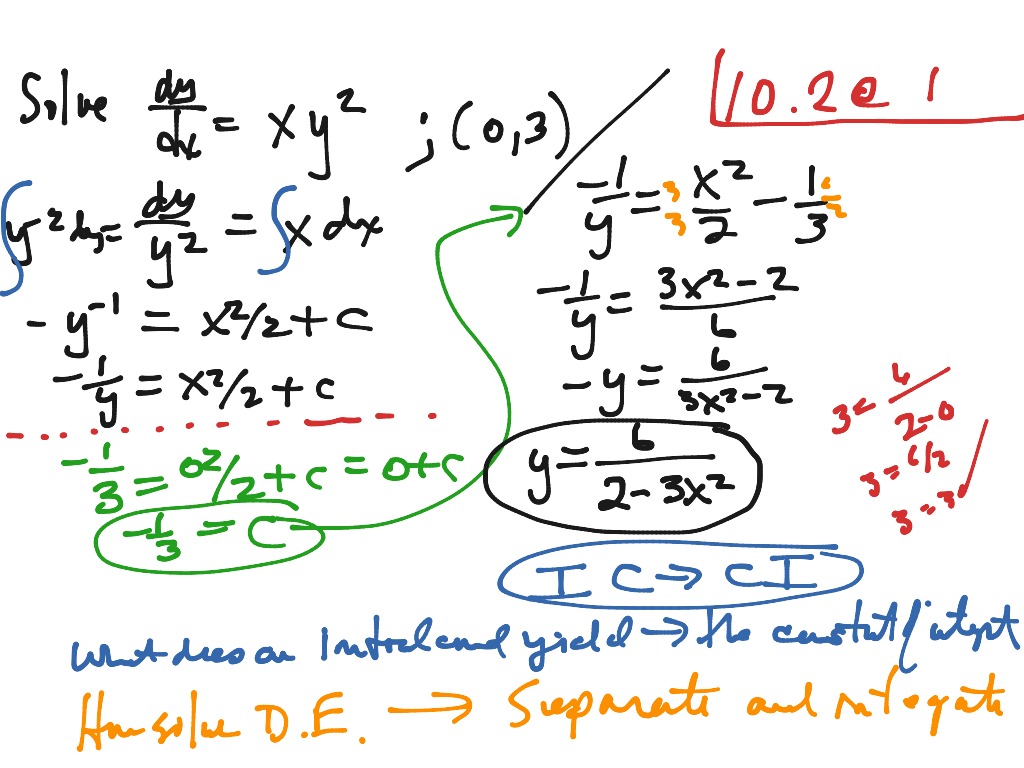 Solve dy/dx = xy² ; (0,3)
10.2 @ 1
∫y⁻² dy = dy/y² = ∫x dx
-y⁻¹ = x²/2 + C
-1/y = x²/2 + C
-1/3 = 0²/2 + C = 0 + C
-1/3 = C
-1/y = 3/3 x²/2 - 1/3 2/2
-1/y = 3x² - 2 / 6
-y = 6 / 3x² - 2
y = 6 / 2 - 3x²
3 = 6 / 2-0
3 = 6/2
3 = 3
I C → C I
what does an Initial cond yield → the constant/
How solve D.E. → Separate and integate